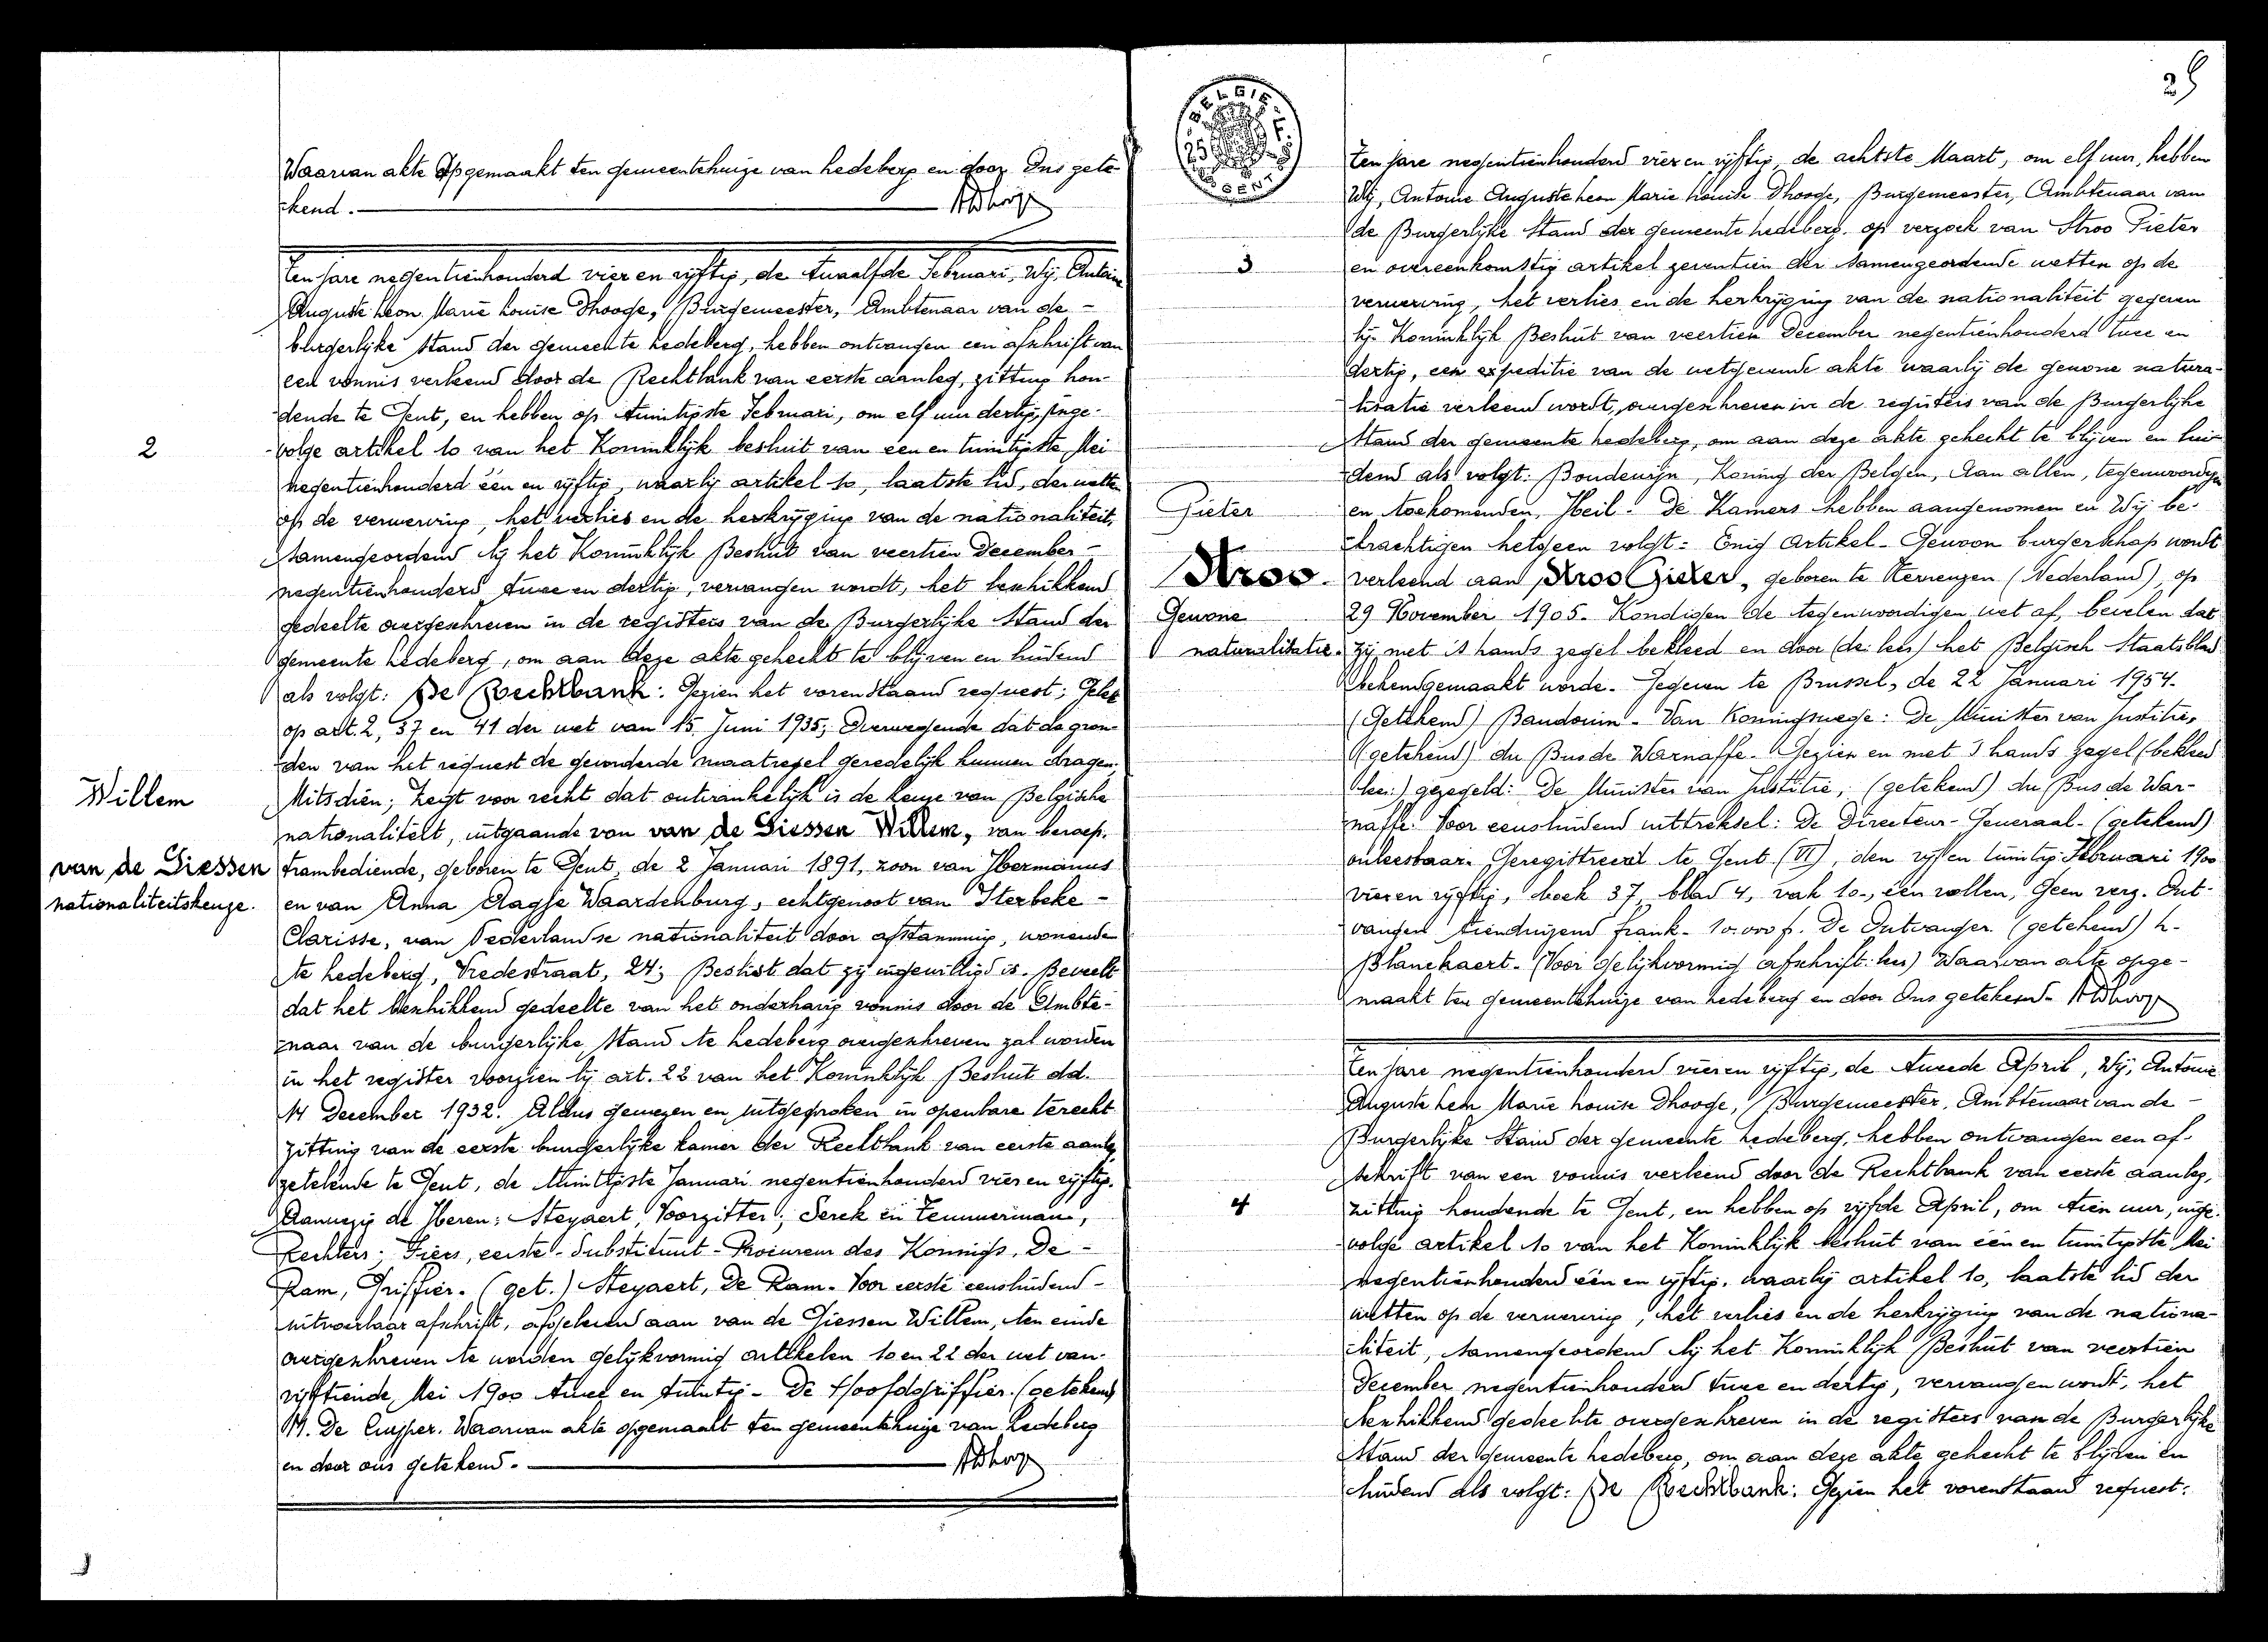 Waarvan akte opgemaakt ten gemeentehuize van Ledeberg en door Ons gete-
kend.
Ten jare negentienhonderd vier en vijftig, de twaalfde Februari, Wij, Antoine
Auguste Leon Marie Louise Dhooge, Burgemeester, Ambtenaar van de
burgerlijke Stand der gemeente Ledeberg, hebben ontvangen een afschrift van
een vonnis verleend door de Rechtbank van eerste aanleg, zitting hou-
dende te Gent, en hebben op twintigste Februari, om elf uur dertig, inge-
2
volge artikel 10 van het Koninklijk besluit van één en twintigste Mei
negentienhonderd één en vijftig, waarbij artikel 10, laatste lid, der wetten
op de verwerving, het verlies en de herkrijging van de nationaliteit,
samengeordend bij het Koninklijk Besluit van veertien December
negentienhonderd twee en dertig, vervangen wordt, het beschikkend
gedeelte overgeschreven in de registers van de Burgerlijke Stand der
gemeente Ledeberg, om aan deze akte gehecht te blijven en luidend
als volgt: De Rechtbank: Gezien het vorenstaand request; Gelet
op art. 2, 37 en 41 der wet van 15 Juni 1935; Overwegende dat de gron-
den van het request de gevorderde maatregel geredelijk kunnen dragen;
Willem
Mitsdien; Zegt voor recht dat ontvankelijk is de keuze van Belgische
nationaliteit, uitgaande van van de Giessen Willem, van beroep
van de Giessen
trambediende, geboren te Gent, de 2 Januari 1891, zoon van Hermanus
nationaliteitskeuze.
en van Anna Aagje Waardenburg, echtgenoot van Sterbeke
Clarisse, van Nederlandse nationaliteit door afstamming, wonende
te Ledeberg, Vredestraat, 24; Beslist dat zij ingewilligd is. Beveelt
dat het beschikkend gedeelte van het onderhavig vonnis door de Ambte-
naar van de burgerlijke Stand te Ledeberg overgeschreven zal worden
in het register voorzien bij art. 22 van het Koninklijk Besluit dd.
14 December 1932. Aldus gewezen en uitgesproken in openbare terecht-
zitting van de eerste burgerlijke kamer der Rechtbank van eerste aanleg,
zetelende te Gent, de twintigste Januari negentienhonderd vier en vijftig.
Aanwezig de Heren: Steyaert, Voorzitter; Serck en Temmerman,
Rechters; Fiers, eerste-Substituut-Procureur des Konings, De
Ram, Griffier. (get.) Steyaert, De Ram. Voor eerste eensluidend
uitvoerbaar afschrift, afgeleverd aan van de Giessen Willem, ten einde
overgeschreven te worden gelijkvormig artikelen 10 en 22 der wet van
vijftiende Mei 1900 twee en twintig. De Hoofdgriffier (getekend)
M. De Cuyper. Waarvan akte opgemaakt ten gemeentehuize van Ledeberg
en door ons getekend.
BELGIE
GENT
Ten jare negentienhonderd vier en vijftig, de achtste Maart, om elf uur, hebben
Wij, Antoine Auguste Leon Marie Louise Dhooge, Burgemeester, Ambtenaar van
de Burgerlijke Stand der gemeente Ledeberg, op verzoek van Stroo Pieter
3
en overeenkomstig artikel zeventien der samengeordende wetten op de
verwerving, het verlies en de herkrijging van de nationaliteit gegeven
bij Koninklijk Besluit van veertien December negentienhonderd twee en
dertig, een expeditie van de wetgevende akte waarbij de gewone natura-
lisatie verleend wordt, overgeschreven in de registers van de Burgerlijke
Stand der gemeente Ledeberg, om aan deze akte gehecht te blijven en lui-
dend als volgt: Boudewijn, Koning der Belgen, Aan allen, tegenwoordigen
Pieter
en toekomenden, Heil. De Kamers hebben aangenomen en Wij be-
krachtigen hetgeen volgt: Enig Artikel - Gewoon burgerschap wordt
Stroo
verleend aan Stroo Pieter, geboren te Terneuzen (Nederland), op
Gewone
29 November 1905. Kondigen de tegenwoordigen wet af, bevelen dat
naturalisatie.
zij met 's hands zegel bekleed en door (de: lees) het Belgisch Staatsblad
bekendgemaakt worde. Gegeven te Brussel, de 22 Januari 1954.
(Getekend) Baudouin - Van Koningswege: De Minister van Justitie,
(getekend) du Bus de Warnaffe. Gezien en met 's hands zegel (bekleed
lees:) gezegeld: De Minister van Justitie, (getekend) du Bus de War-
naffe. Voor eensluidend uittreksel: De Directeur-Generaal - (getekend)
onleesbaar. Geregistreerd te Gent (VI), den vijf en twintig Februari 1900
vier en vijftig, boek 37, blad 4, vak 10, één rollen, Geen verz. Ont-
vangen tienduizend frank - 10.000 f. De Ontvanger (getekend) L.
Blanckaert. (Voor gelijkvormig afschrift: lees) Waarvan akte opge-
maakt ten gemeentehuize van Ledeberg en door Ons getekend.
Ten jare negentienhonderd vier en vijftig, de tweede April, Wij, Antoine
Auguste Leon Marie Louise Dhooge, Burgemeester, Ambtenaar van de
Burgerlijke Stand der gemeente Ledeberg, hebben ontvangen een af-
schrift van een vonnis verleend door de Rechtbank van eerste aanleg,
4
zitting houdende te Gent, en hebben op vijfde April, om tien uur, inge-
volge artikel 10 van het Koninklijk besluit van één en twintigste Mei
negentienhonderd één en vijftig, waarbij artikel 10, laatste lid der
wetten op de verwerving, het verlies en de herkrijging van de nationa-
liteit, samengeordend bij het Koninklijk Besluit van veertien
December negentienhonderd twee en dertig, vervangen wordt, het
beschikkend gedeelte overgeschreven in de registers van de Burgerlijke
Stand der gemeente Ledeberg, om aan deze akte gehecht te blijven en
luidend als volgt: De Rechtbank: Gezien het vorenstaand request: